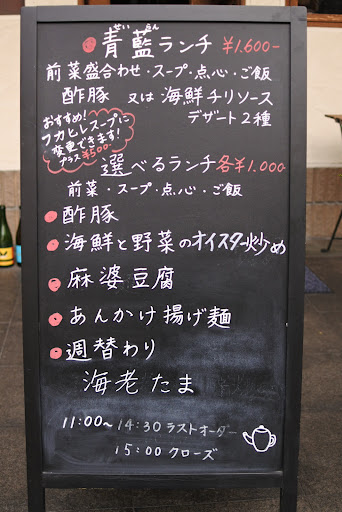 せい らん
青藍ランチ ¥1.600-
前菜盛合わせ・スープ・点心・ご飯
酢豚 又は 海鮮チリソース
デザート2種
おすすめ!
フカヒレスープに
変更できます!
プラス¥500-
選べるランチ各¥1.000
前菜・スープ・点心・ご飯
酢豚
海鮮と野菜のオイスター炒め
麻婆豆腐
あんかけ揚げ麺
週替わり
海老たま
11:00~14:30 ラストオーダー
15:00 クローズ